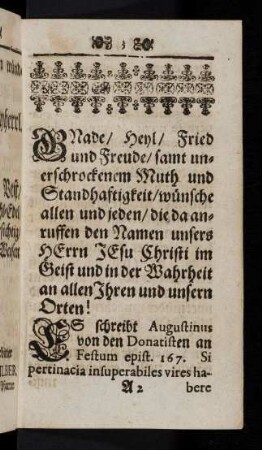 3
GNade/ Heyl/ Fried
und Freude/ samt un-
erschrockenem Muth und
Standhaftigkeit/ wünsche
allen und jeden/ die da an-
ruffen den Namen unsers
HErrn JEsu Christi im
Geist und in der Wahrheit
an allen Jhren und unsern
Orten!
ES schreibt Augustinus
von den Donatisten an
Festum epist. 167. Si
pertinacia insuperabiles vires ha-
A 2 bere